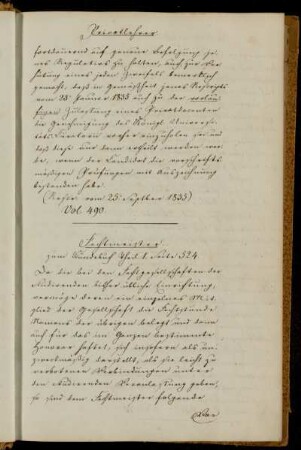 Privatlehrer
fortdauernd auf genaue Befolgung je-
nes Regulativs zu halten, auch zur Ver-
hütung eines jeden Zweifels bemerklich
gemacht, daß in Gemäßheit jenes Rescripts
vom 28 Januar 1833 auch zu der vorläu-
figen Zulassung eines Privatdocenten
die Genehmigung des Königl. Universi-
täts-Curatorii vorher einzuholen sei und
daß diese nur dann ertheilt werden wer-
de, wenn der Candidat die vorschrifts-
mäßigen Prüfungen mit Auszeichnung
bestanden habe.
(Rescr. vom 25 Septber 1833)
Vol. 490
Fechtmeister
zum Kundebuch Theil 1. Seite 524
Da die bei den Fechtgesellschaften der
Studirenden bisher übliche Einrichtung,
vermöge deren ein einzelnes Mit-
glied der Gesellschaft die Fechtstunde
Namens der übrigen belegt und dann
auch für das im Ganzen bestimmte
Honorar haftet, sich insofern als un-
zweckmäßig darstellt, als sie leicht zu
verbotenen Verbindungen unter
den Studirenden Veranlassung geben,
so sind dem Fechtmeister folgende